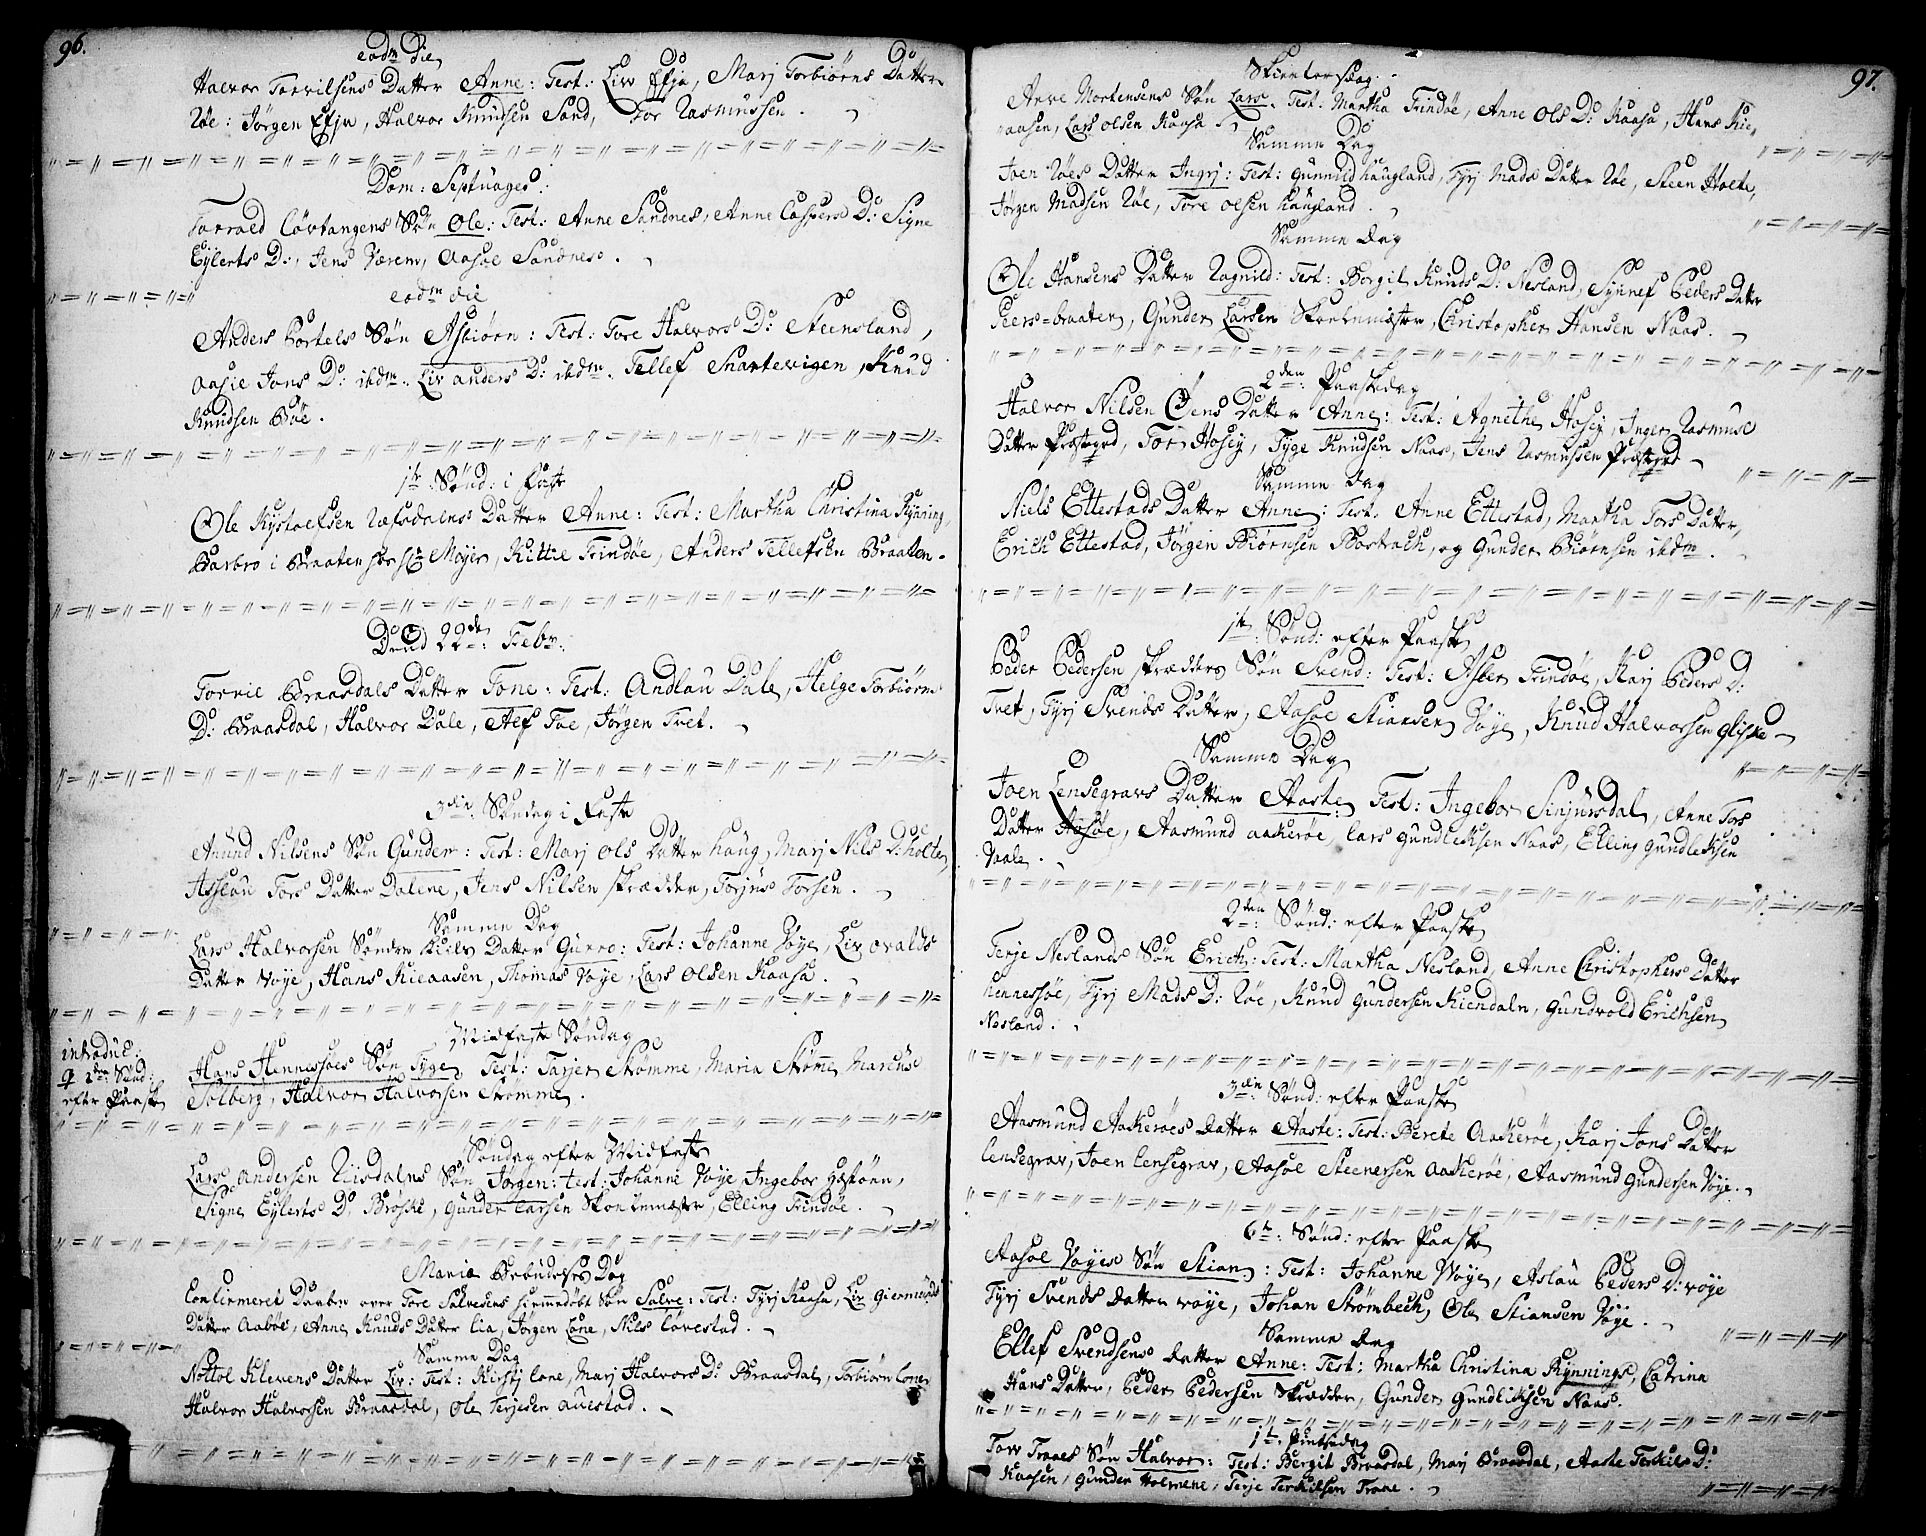 96.
eodm die
Halvor Torvilsens Datter Anne: Test: Liv Efja, Marj Torbiörns Datter
Röe: Jörgen Efja, Halvor Knudsen Sand, Tor Rasmussen.
Dom: Septuages:
Torrald Lövtangens Sön Ole: Test: Anne Sandnes, Anne Caspers D: Signe
Eylerts D:, Jens Værem, Aasol Sandnes.
eodm die
Anders Bortels Sön Asbiörn: Test: Tore Halvors D: Steensland,
Aasie Jons D: ibdm. Liv Anders D: ibdm. Tellef Snartevigen, Knud
Knudsen Böe.
1te Sönd: i Faste
Ole Rystoefsen Ræfsdalens Datter Anne: Test: Martha Christina Rynning,
Barbro i Braaten hos Moyer, Kittil Trindöe, Anders Tellefsen Braaten.
D: 22de: Febr:
Torrie Braasdals Datter Tone: Test: Andlau Dale, Helge Torbiörns
D: Braasdal, Halvor Dale, Alf Toe, Jörgen Tvet.
3die: Söndag i Faste
Anund Nilsens Sön Gunder: Test: Marj Ols Datter Haug, Marj Nils D: Holte,
Asslau Tors Datter Dalene, Jens Nilsen skrædder, Torjus Torsen.
Samme Dag
Lars Halvorsen Söndre Kiils Datter Gurro: Test: Johanne Vöye, Liv Ovalds
Datter Vöye, Hans Kieaasen, Thomas Vöye, Lars Olsen Kaasa.
Midfaste Söndag
introduc:
2den Sönd:
efter Paaske
Hans Hennessöes Sön Tyge, Test: Tarjer Strömme, Maria Strömme, Marcus
Solberg, Halvor Halvorsen Strömme.
Söndag efter Midfaste
Lars Andersen Riisdalens Sön Jörgen: test: Johanne Vöye, Ingebor Hæstöen,
Signe Eylerts D: Bröske, Gunder Larsen Skoelemæster, Elling Trindöe.
Mariæ Bebudelses Dag
Confirmeret Daaben over Tore Salvesens hiemmedöbt Sön Salve: Test: Tyrj Kaasa, Liv Giermunds
Datter Aaböe, Anne Knuds Datter Lia, Jörgen Lone, Nils Lovestad.
Samme Dag
Nottol Klevens Datter Liv: Test: Kirstj Lone, Marj Halvors D: Braasdal, Torbiörn Lone,
Halvor Halvorsen Braasdal, Ole Terjesen Auestad.
97.
Skiertorsdag.
Arve Mortensens Sön Lars. Test: Martha Trindöe, Anne Ols D: Kaasa, Hans Kie-
aasen, Lars Olsen Kaasa
Samme Dag
Joen Röes Datter Ingrj: Test: Gunnild Haugland, Tyrj Mads Datter Röe, Steen Holte,
Jörgen Madsen Röe, Tore Olsen Haugland.
Samme Dag
Ole Hansens Datter Ragnild: Test: Borgil Knuds D: Nesland, Synnef Peders Datter
Peers=braaten, Gunder Larsen Skoelemæster, Christopher Hansen Naas.
2den: Paaskedag
Halvor Nilsen Öens Datter Anne: Test: Agnethe Hosey, Inger Rasmus
Datter Præstgrd, Tor Hosey, Tyge Knudsen Naas, Jens Rasmussen Præstgrd
Samme Dag
Niels Ettestads Datter Anne: Test. Anne Ettestad, Martha Tors Datter,
Erich Ettestad, Jörgen Biörnsen Bostrach, og Gunder Biörnsen ibdm.
1te: Sönd: efter Paaske
Peder Pedersen skrædders Sön Svend: Test: Asber Trindöe, Karj Peders D:
Tvet, Tyrj Svends Datter, Aasol Stiansen Vöye, Knud Halvorsen Gliske
Samme Dag
Joen Lensegravs Datter Aaste: Test: Ingebor Sinjursdal, Anne Tors
Datter Hosöe, Aasmund Aakeröe, Lars Gundleksen Naas, Elling Gundleksen
Vaale.
2den: Sönd: efter Paaske
Terje Neslands Sön Erich: Test: Martha Nesland, Anne Christophers Datter
Hennessöe, Tyrj Mads D: Röe, Knud Gundersen Kiendaln, Gundvold Erichsen
Nesland.
3die: Sönd: efter Paaske
Aasmund Aakeröes Datter Aaste: Test: Berete Aakeröe, Karj Jons Datter
Lensegrav, Joen Lensegrav, Aasol Steenersen Aakeröe, Aasmund Gundersen Vöye.
6te: Sönd: efter Paaske
Aasol Vöyes Sön Stian: Test: Johanne Vöye, Aslau Peders D: Vöye
Tyrj Svends Datter Vöye, Johan Strömbech, Ole Stiansen Vöye.
Samme Dag
Ellef Svendsens Datter Anne: Test: Martha Christina Rynnings, Catrina
Hans Datter, Peder Pedersen Skrædder, Gunder Gundleksen Naas.
1te: Pintsedag
Tov Traaes Sön Halvor: Test: Bergit Braasdal, Marj Braasdal, Aaste Terkils D:
Kaasen, Gunder Holmene, Terje Terkilsen Traae.